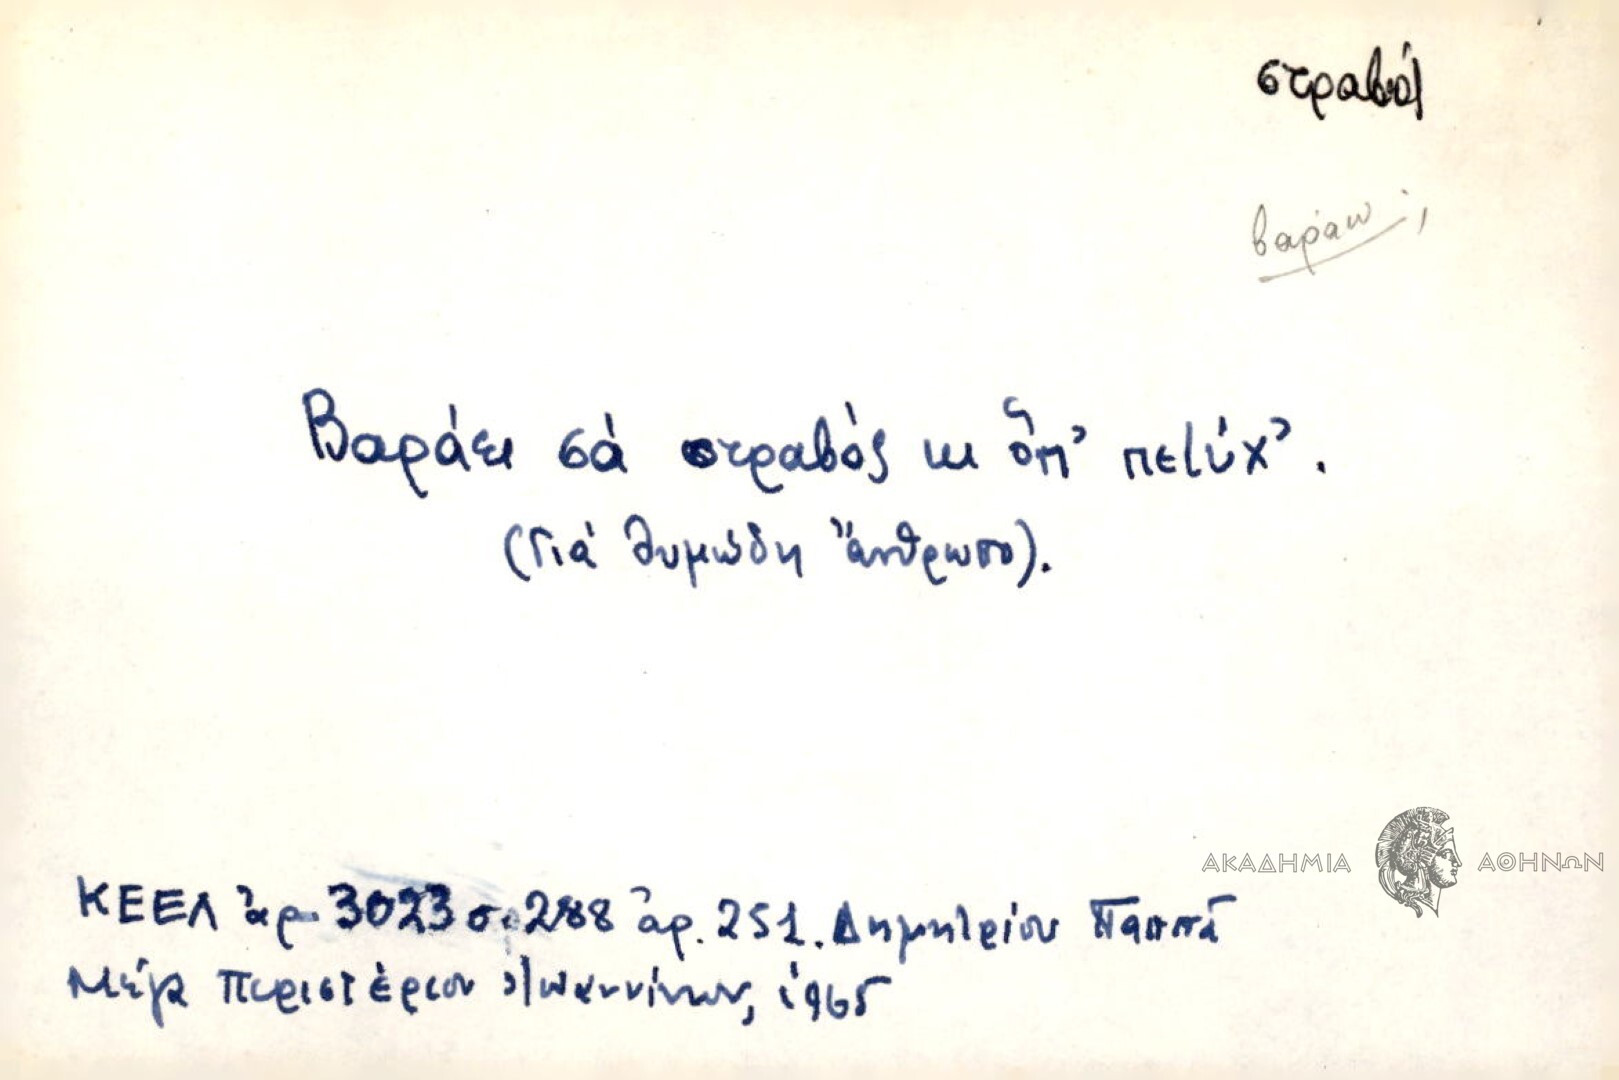 στραβός
βαράω;
Βαράει σὰ στραβὸς κι ὅπ' πετύχ'.
(Γιὰ θυμώδη ἄνθρωπο).
ΑΚΑΔΗΜΙΑ ΑΘΗΝΩΝ
ΚΕΕΛ ἀρ. 3023 σ. 288 ἀρ. 251. Δημητρίου Παππᾶ
Μέγα Περιστέριον Ἰωαννίνων, 1965